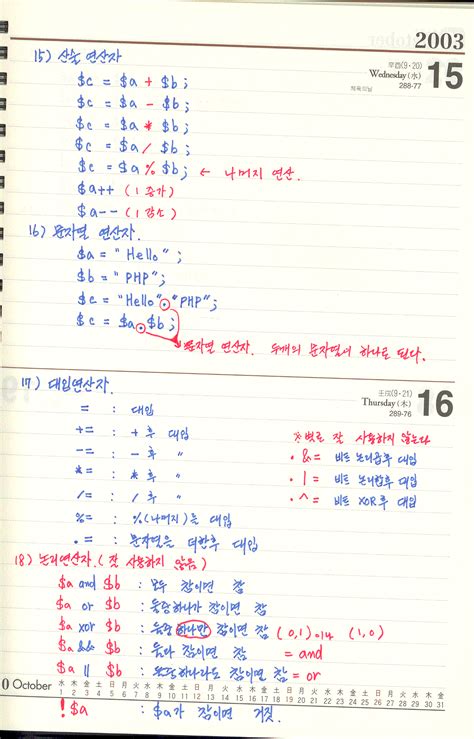 2003
辛酉(9·20)
Wednesday (水) 15
288-77
체육의날
15) 산술 연산자
$c = $a + $b ;
$c = $a - $b ;
$c = $a * $b ;
$c = $a / $b ;
$c = $a % $b ; ← 나머지 연산.
$a++ (1 증가)
$a-- (1 감소)
16) 문자열 연산자.
$a = "Hello" ;
$b = "PHP" ;
$c = "Hello" . "PHP" ;
$c = $a . $b ;
문자열 연산자. 두개의 문자열이 하나로 된다.
壬戌(9·21)
Thursday (木) 16
289-76
17) 대입연산자.
= : 대입
+= : + 후 대입 ※별로 잘 사용하지 않는다
-= : - 후 〃 · &= 비트 논리곱후 대입
*= : * 후 〃 · |= 비트 논리합후 대입
/= : / 후 〃 · ^= 비트 XOR후 대입
%= : %(나머지)를 대입
.= : 문자열을 더한후 대입
18) 논리연산자. (잘 사용하지 않음)
$a and $b : 모두 참이면 참
$a or $b : 둘중하나가 참이면 참
$a xor $b : 둘중 하나만 참이면 참 (0,1) 이나 (1,0)
$a && $b : 둘다 참이면 참 = and
$a || $b : 하나라도 참이면 참 = or
0 October
水 木 金 土 日 月 火 水 木 金 土 日 月 火 水 木 金 土 日 月 火 水 木 金 土 日 月 火 水 木 金
1 2 3 4 5 6 7 8 9 10 11 12 13 14 15 16 17 18 19 20 21 22 23 24 25 26 27 28 29 30 31
!$a : $a가 참이면 거짓.